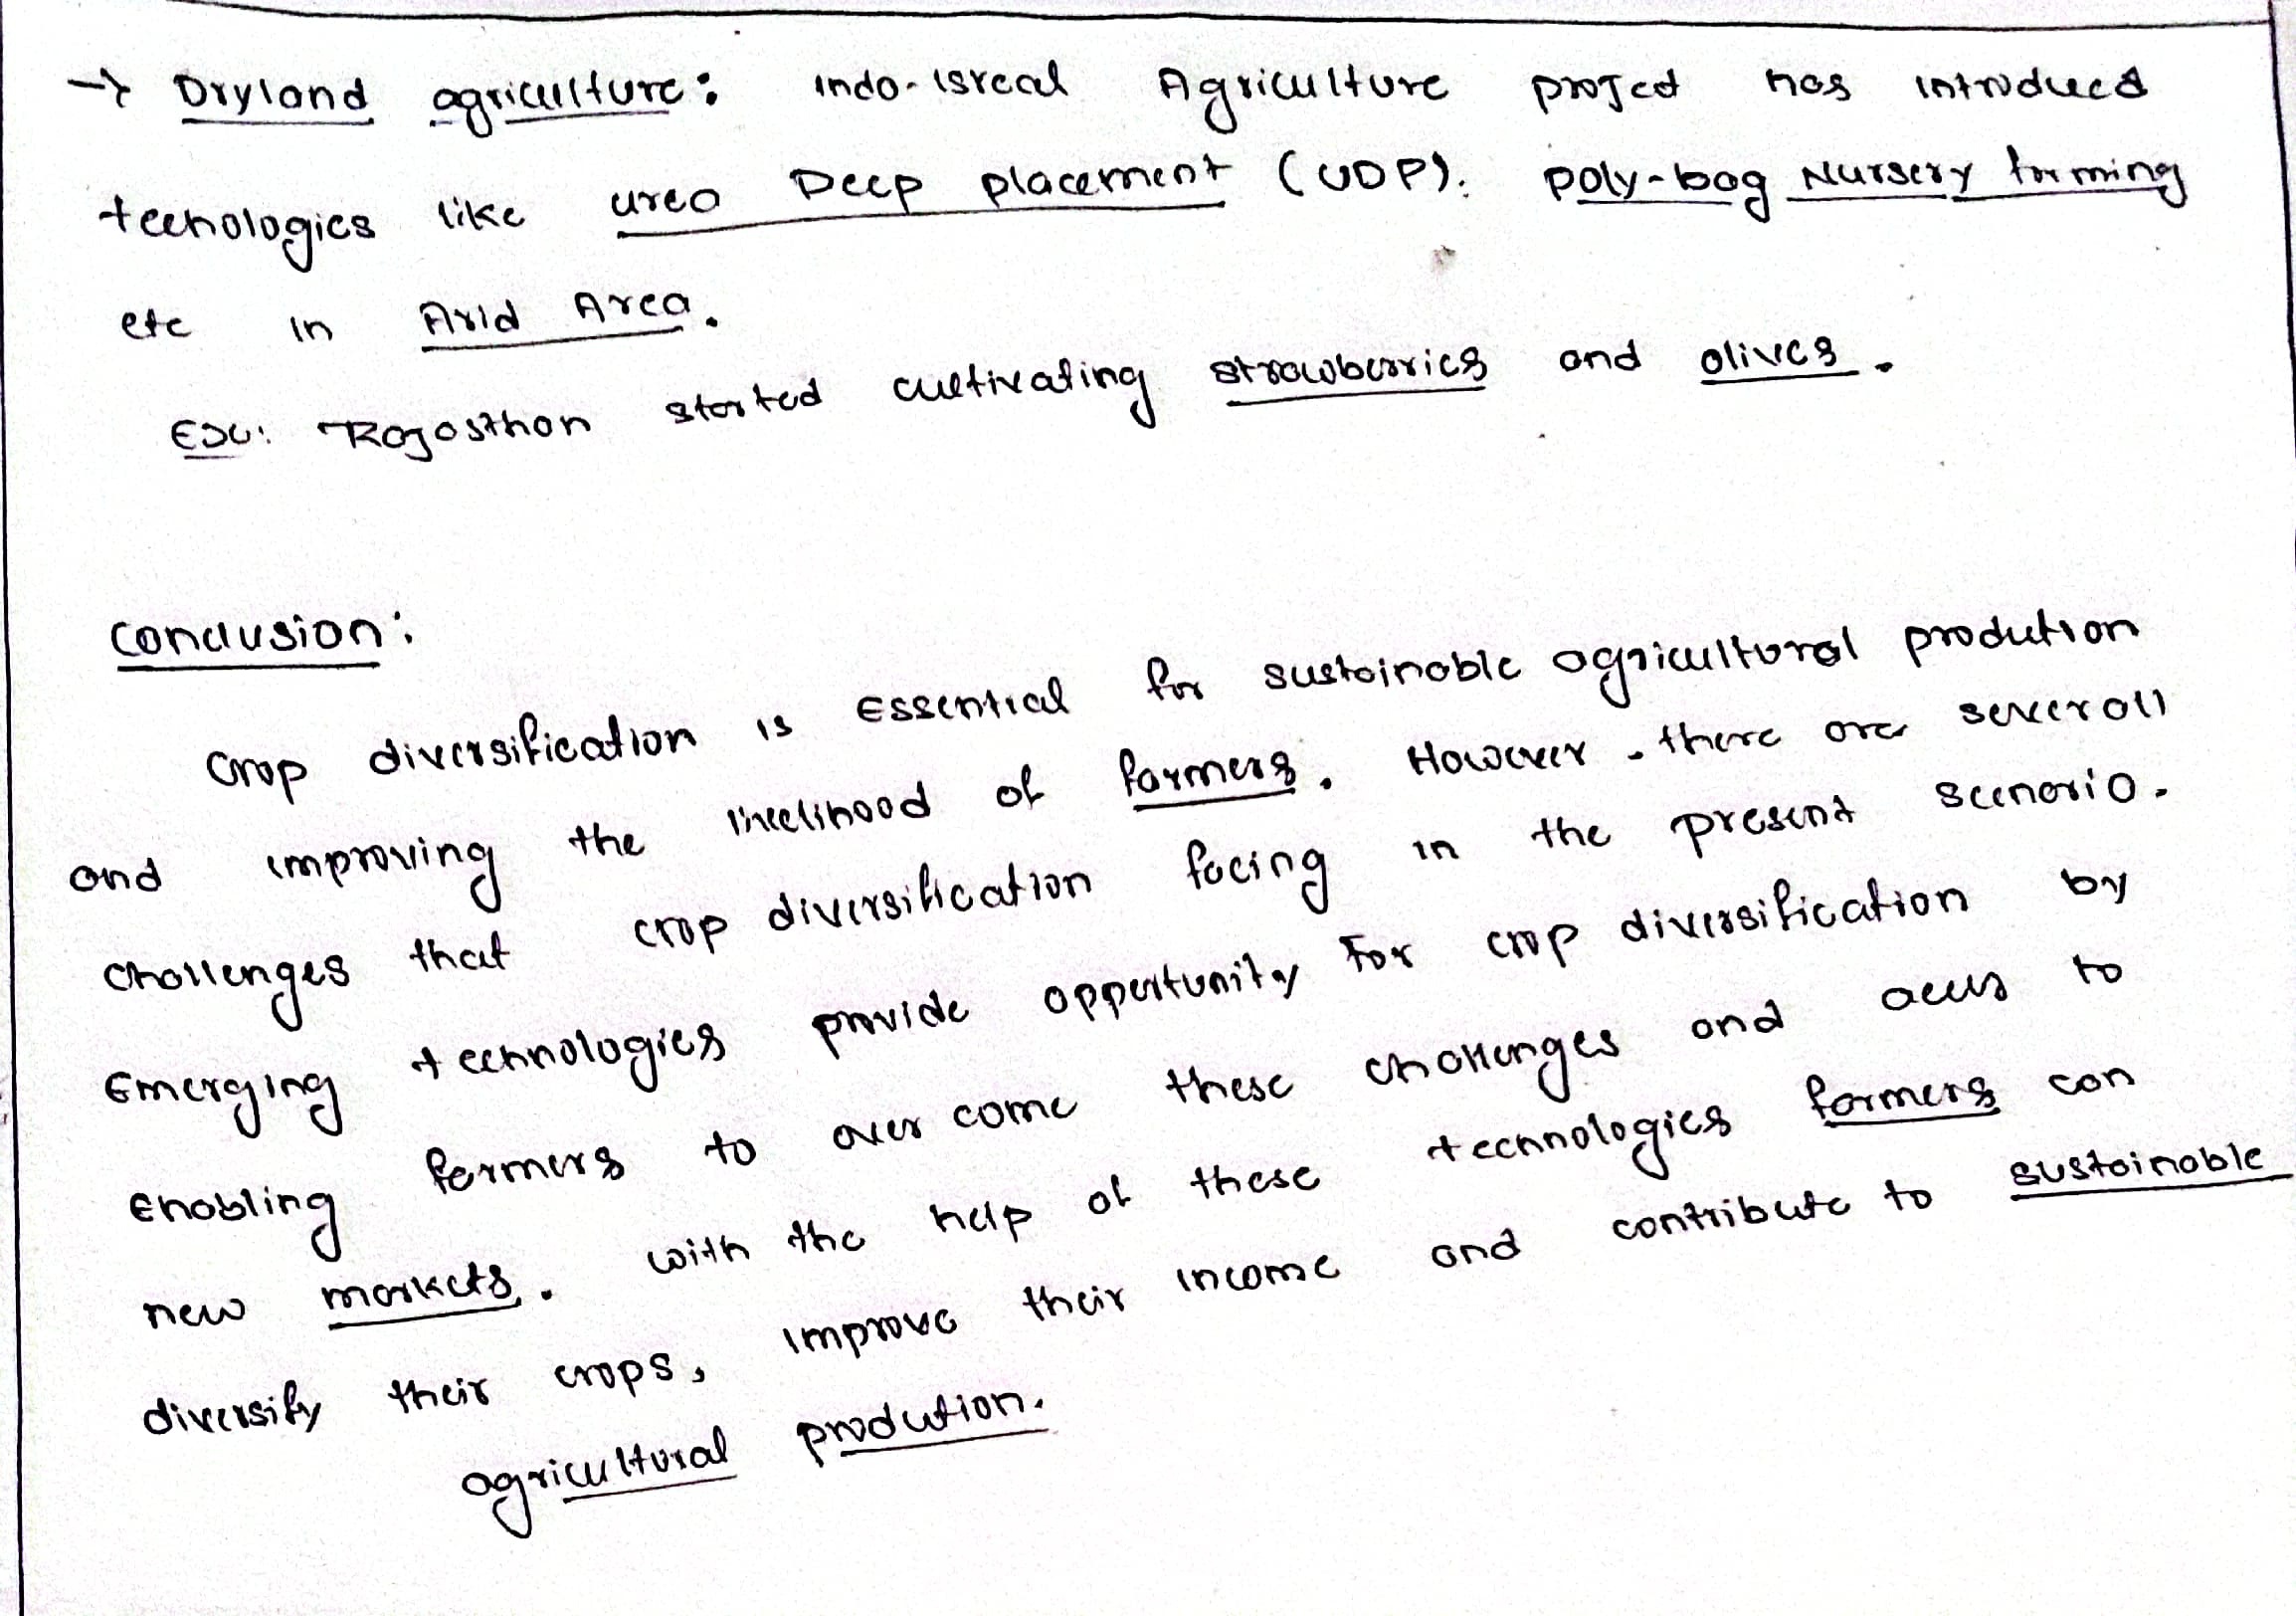 → Dryland agriculture: Indo-Isreal Agriculture project has introduced
technologies like urea Deep placement (UDP). poly-bag Nursery farming
etc in Arid Area.
Ex: Rajasthan started cultivating strawberries and olives.
Conclusion:
Crop diversification is Essential for sustainable agricultural prodution
and improving the livelihood of farmers. However, there are severall
challenges that crop diversification facing in the present scenario.
Emerging technologies provide oppertunity For crop diversification by
Enabling farmers to over come these challenges and acces to
new markets. with the help of these technologies farmers can
diversify their crops, improve their income and contribute to sustainable
agricultural prodution.